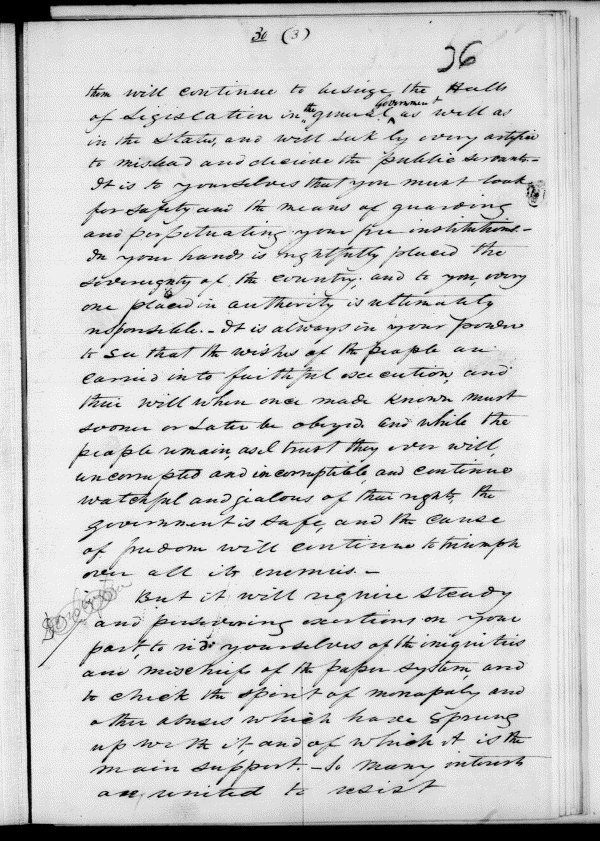 30 (3)
36
them will continue to besiege the Halls
of Legislation in the general Government as well as
in the States, and will seek by every artifice
to mislead and decieve the public servants –
It is to yourselves that you must look
for safety and the means of guarding
and perpetuating your free institutions. –
In your hands is rightfully placed the
sovereignty of the country. and to you, every
one placed in authority is ultimately
responsible. – It is always in your power
to see that the wishes of the people are
carried into faithful execution, and
their will when once made known must
sooner or later be obeyed. and while the
people remain, as I trust they ever will,
uncorrupted and incorruptible, and continue
watchful and jealous of their rights, the
government is safe, and the cause
of freedom will continue to triumph
over all its enemies. –
But it will require steady
and persevering exertions on your
part, to rid yourselves of the iniquities
and mischiefs of the paper system, and
to check the spirit of monopoly and
other abuses which have sprung
up with it and of which it is the
main support – So many interests
are united to resist